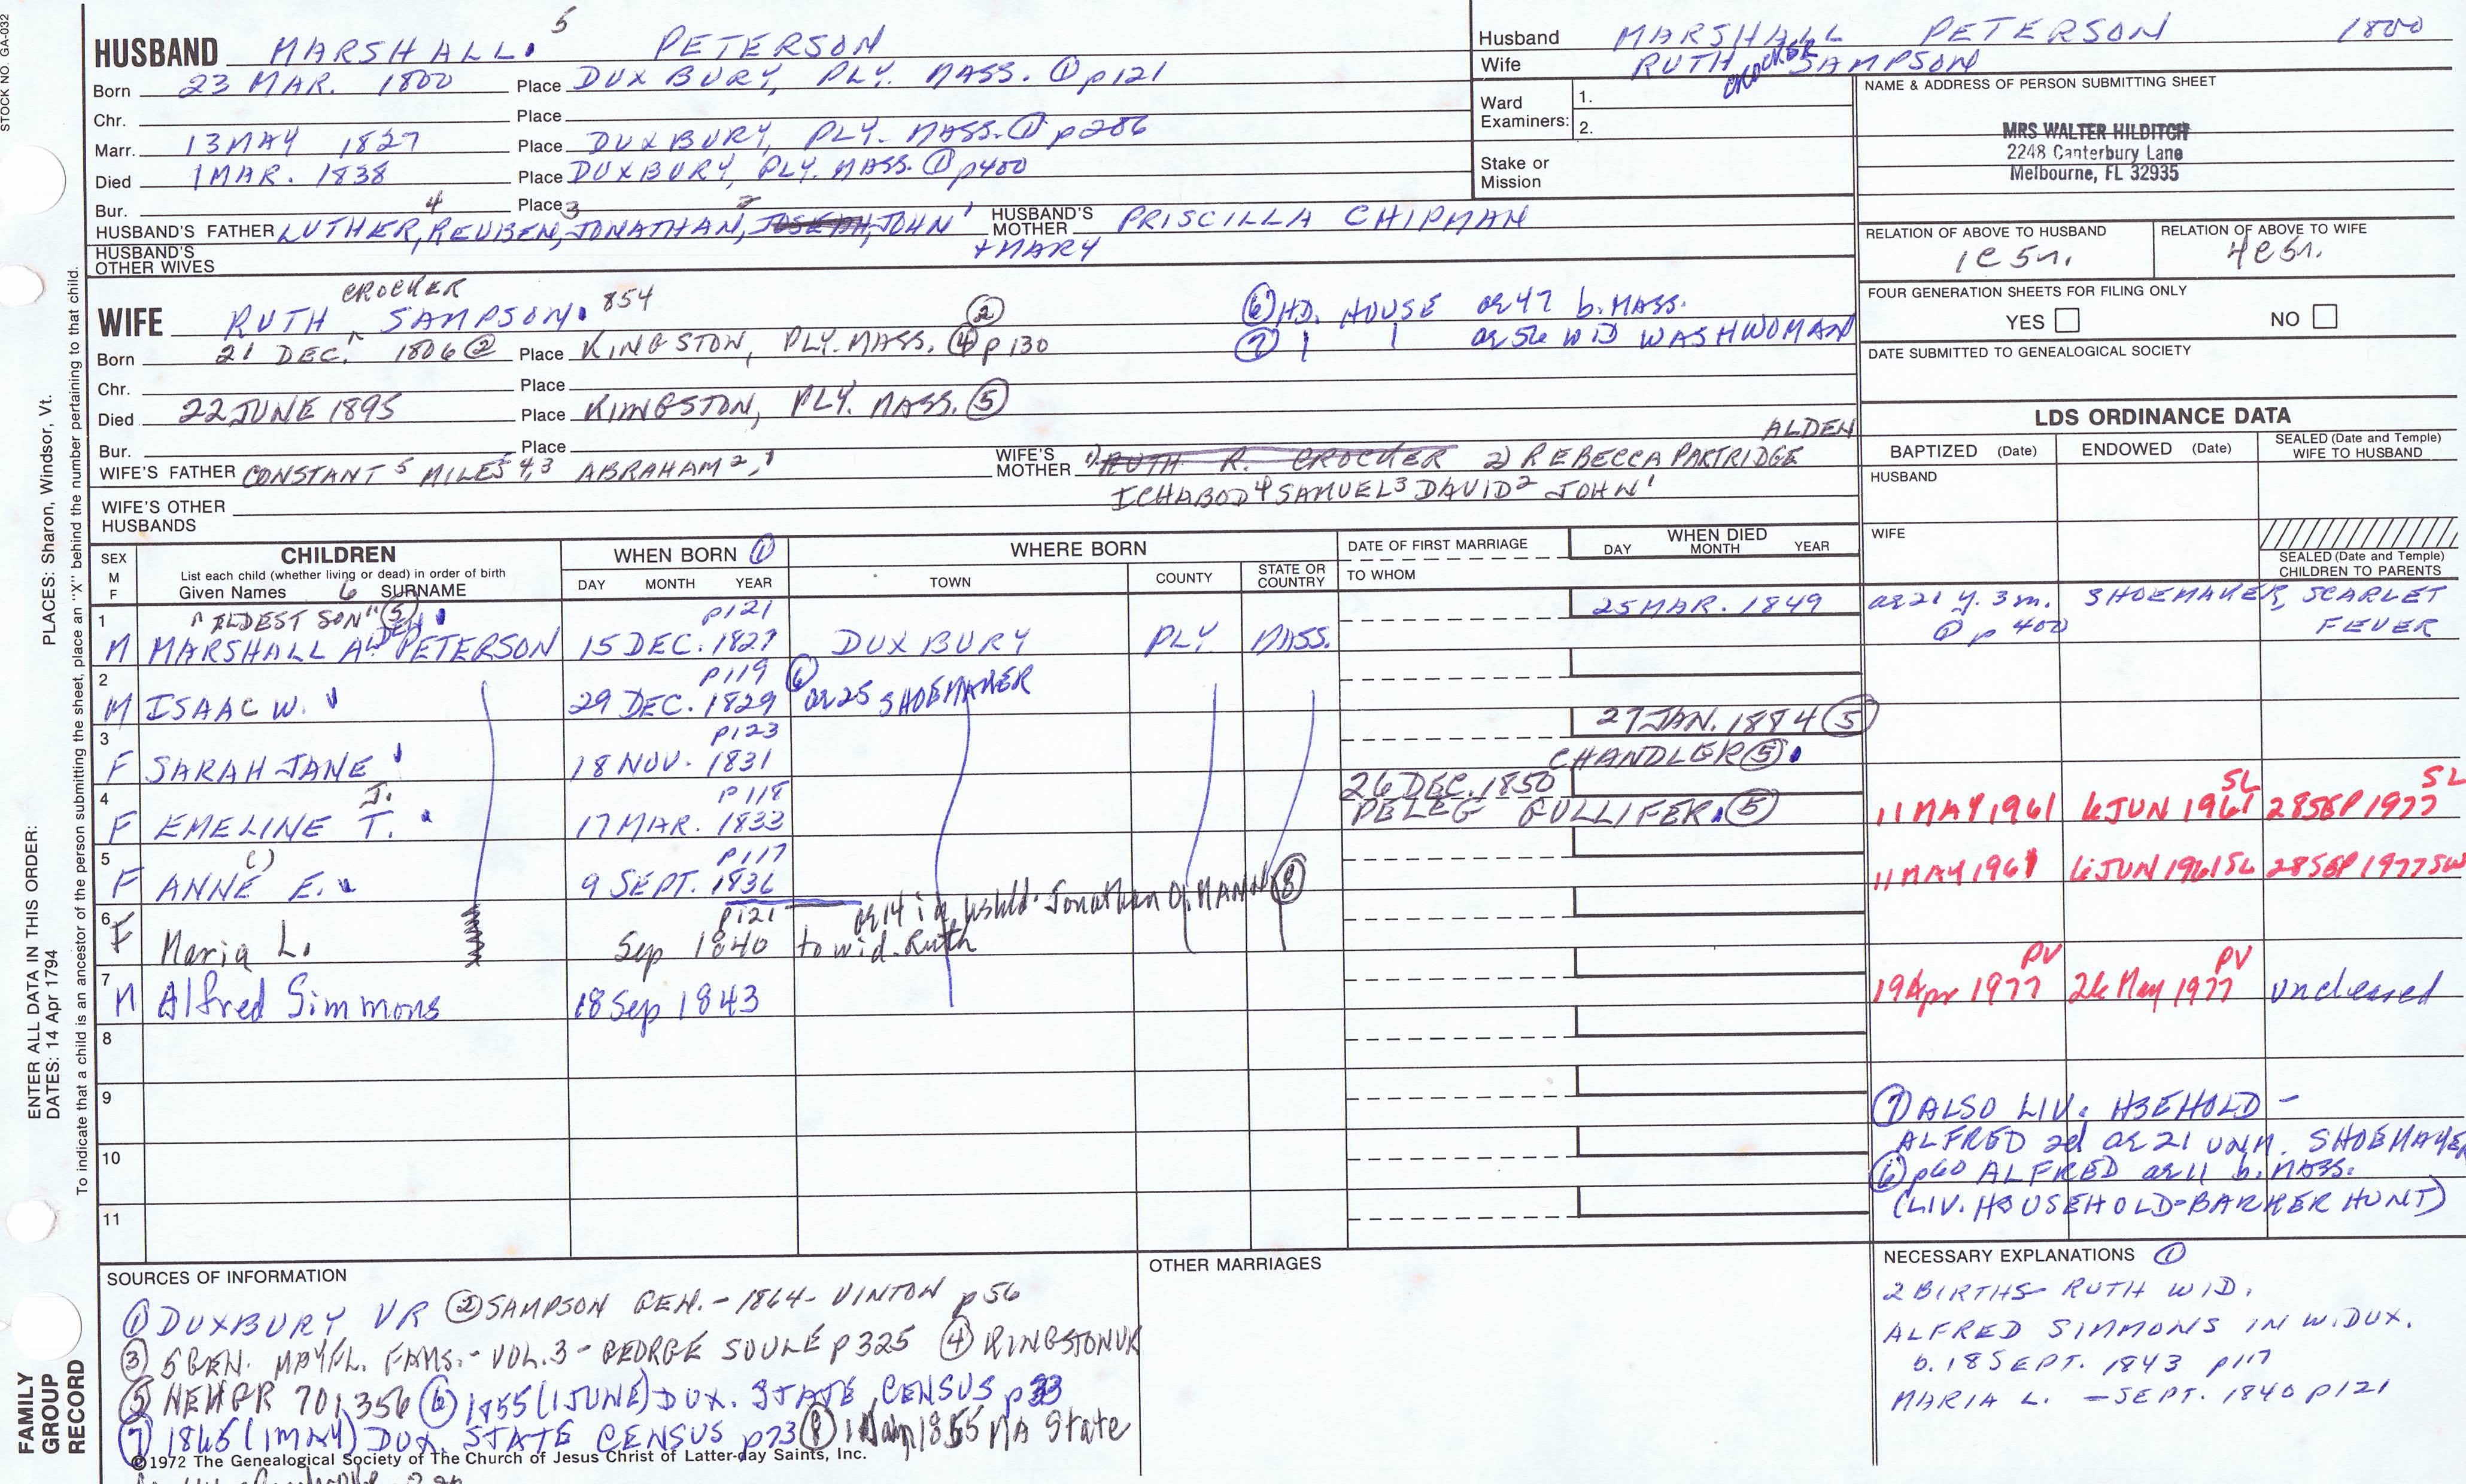 STOCK NO. GA-032
HUSBAND MARSHALL. 5 PETERSON
Born 23 MAR. 1800 Place DUXBURY, PLY. MASS. ① p121
Chr. Place
Marr. 13 MAY 1827 Place DUXBURY, PLY. MASS. ① p286
Died 1 MAR. 1838 Place DUXBURY, PLY. MASS. ① p400
Bur. Place
HUSBAND'S FATHER LUTHER, 4 REUBEN, 3 JONATHAN, 2 JOSEPH, JOHN 1 HUSBAND'S MOTHER PRISCILLA CHIPMAN
+ MARY
HUSBAND'S OTHER WIVES
Husband MARSHALL PETERSON 1800
Wife RUTH CROCKER SAMPSON
Ward Examiners: 1.
2.
Stake or Mission
NAME & ADDRESS OF PERSON SUBMITTING SHEET
MRS WALTER HILDITCH
2248 Canterbury Lane
Melbourne, FL 32935
RELATION OF ABOVE TO HUSBAND 1C 5r.
RELATION OF ABOVE TO WIFE 4C 5r.
FOUR GENERATION SHEETS FOR FILING ONLY
YES NO
DATE SUBMITTED TO GENEALOGICAL SOCIETY
WIFE RUTH CROCKER SAMPSON. 854 ②
⑥ HD. HOUSE ae 47 b. MASS.
⑦ ae 56 WID WASHWOMAN
Born 21 DEC. 1806 ② Place KINGSTON, PLY. MASS. ④ p130
Chr. Place
Died 22 JUNE 1895 Place KINGSTON, PLY. MASS. ⑤
Bur. Place
WIFE'S FATHER CONSTANT 5 MILES 4,3 ABRAHAM 2,1
WIFE'S MOTHER 1) RUTH R. CROCKER 2) REBECCA PARTRIDGE ALDEN
ICHABOD 4 SAMUEL 3 DAVID 2 JOHN 1
WIFE'S OTHER HUSBANDS
LDS ORDINANCE DATA
BAPTIZED (Date) ENDOWED (Date) SEALED (Date and Temple) WIFE TO HUSBAND
HUSBAND
WIFE
SEALED (Date and Temple) CHILDREN TO PARENTS
SEX M F
CHILDREN
List each child (whether living or dead) in order of birth
Given Names 6 SURNAME
WHEN BORN ①
DAY MONTH YEAR
WHERE BORN
TOWN COUNTY STATE OR COUNTRY
DATE OF FIRST MARRIAGE
TO WHOM
WHEN DIED
DAY MONTH YEAR
1 "ELDEST SON" ⑤ p121 25 MAR. 1849 ae 21 y. 3 m. SHOEMAKER, SCARLET FEVER
M MARSHALL ALDEN PETERSON 15 DEC. 1827 DUXBURY PLY MASS. ① p 400
2 p119
M ISAAC W. 29 DEC. 1829 ⑥ ae 25 SHOEMAKER
3 p123 27 JAN. 1884 ⑤
F SARAH JANE 18 NOV. 1831 CHANDLER ⑤
4 J. p118 26 DEC. 1850
F EMELINE T. 17 MAR. 1833 PELEG GULLIFER. ⑤ 11 MAY 1961 6 JUN 1961 SL 28 SEP 1977 SL
5 p117
F ANNE E. 9 SEPT. 1836 11 MAY 1961 6 JUN 1961 SL 28 SEP 1977 SW
6 p121 ae 14 in hshld. Jonathan O. MANN ⑧
F Maria L. Sep 1840 to wid. Ruth
7 M Alfred Simmons 18 Sep 1843 19 Apr 1977 PV 26 May 1977 PV uncleared
8
9
10
11
⑦ ALSO LIV. HSEHOLD -
ALFRED 2d ae 21 UNM. SHOEMAKER
⑥ p60 ALFRED ae 11 b. MASS.
(LIV. HOUSEHOLD-BARKER HUNT)
SOURCES OF INFORMATION
① DUXBURY VR ② SAMPSON GEN.- 1864- VINTON p56
③ 5 GEN. MAYFL. FAMS.- VOL.3- GEORGE SOULE p325 ④ KINGSTON VR
⑤ NEHGR 701,356 ⑥ 1855 (1 JUNE) DUX. STATE CENSUS p33
⑦ 1865 (1 MAY) DUX. STATE CENSUS p73 ⑧ 1855 MA State
©1972 The Genealogical Society of The Church of Jesus Christ of Latter-day Saints, Inc.
OTHER MARRIAGES
NECESSARY EXPLANATIONS ①
2 BIRTHS- RUTH WID.
ALFRED SIMMONS IN W. DUX.
b. 18 SEPT. 1843 p117
MARIA L. - SEPT. 1840 p121
PLACES: Sharon, Windsor, Vt.
ENTER ALL DATA IN THIS ORDER:
DATES: 14 Apr 1794
To indicate that a child is an ancestor of the person submitting the sheet, place an "X" behind the number pertaining to that child.
FAMILY GROUP RECORD